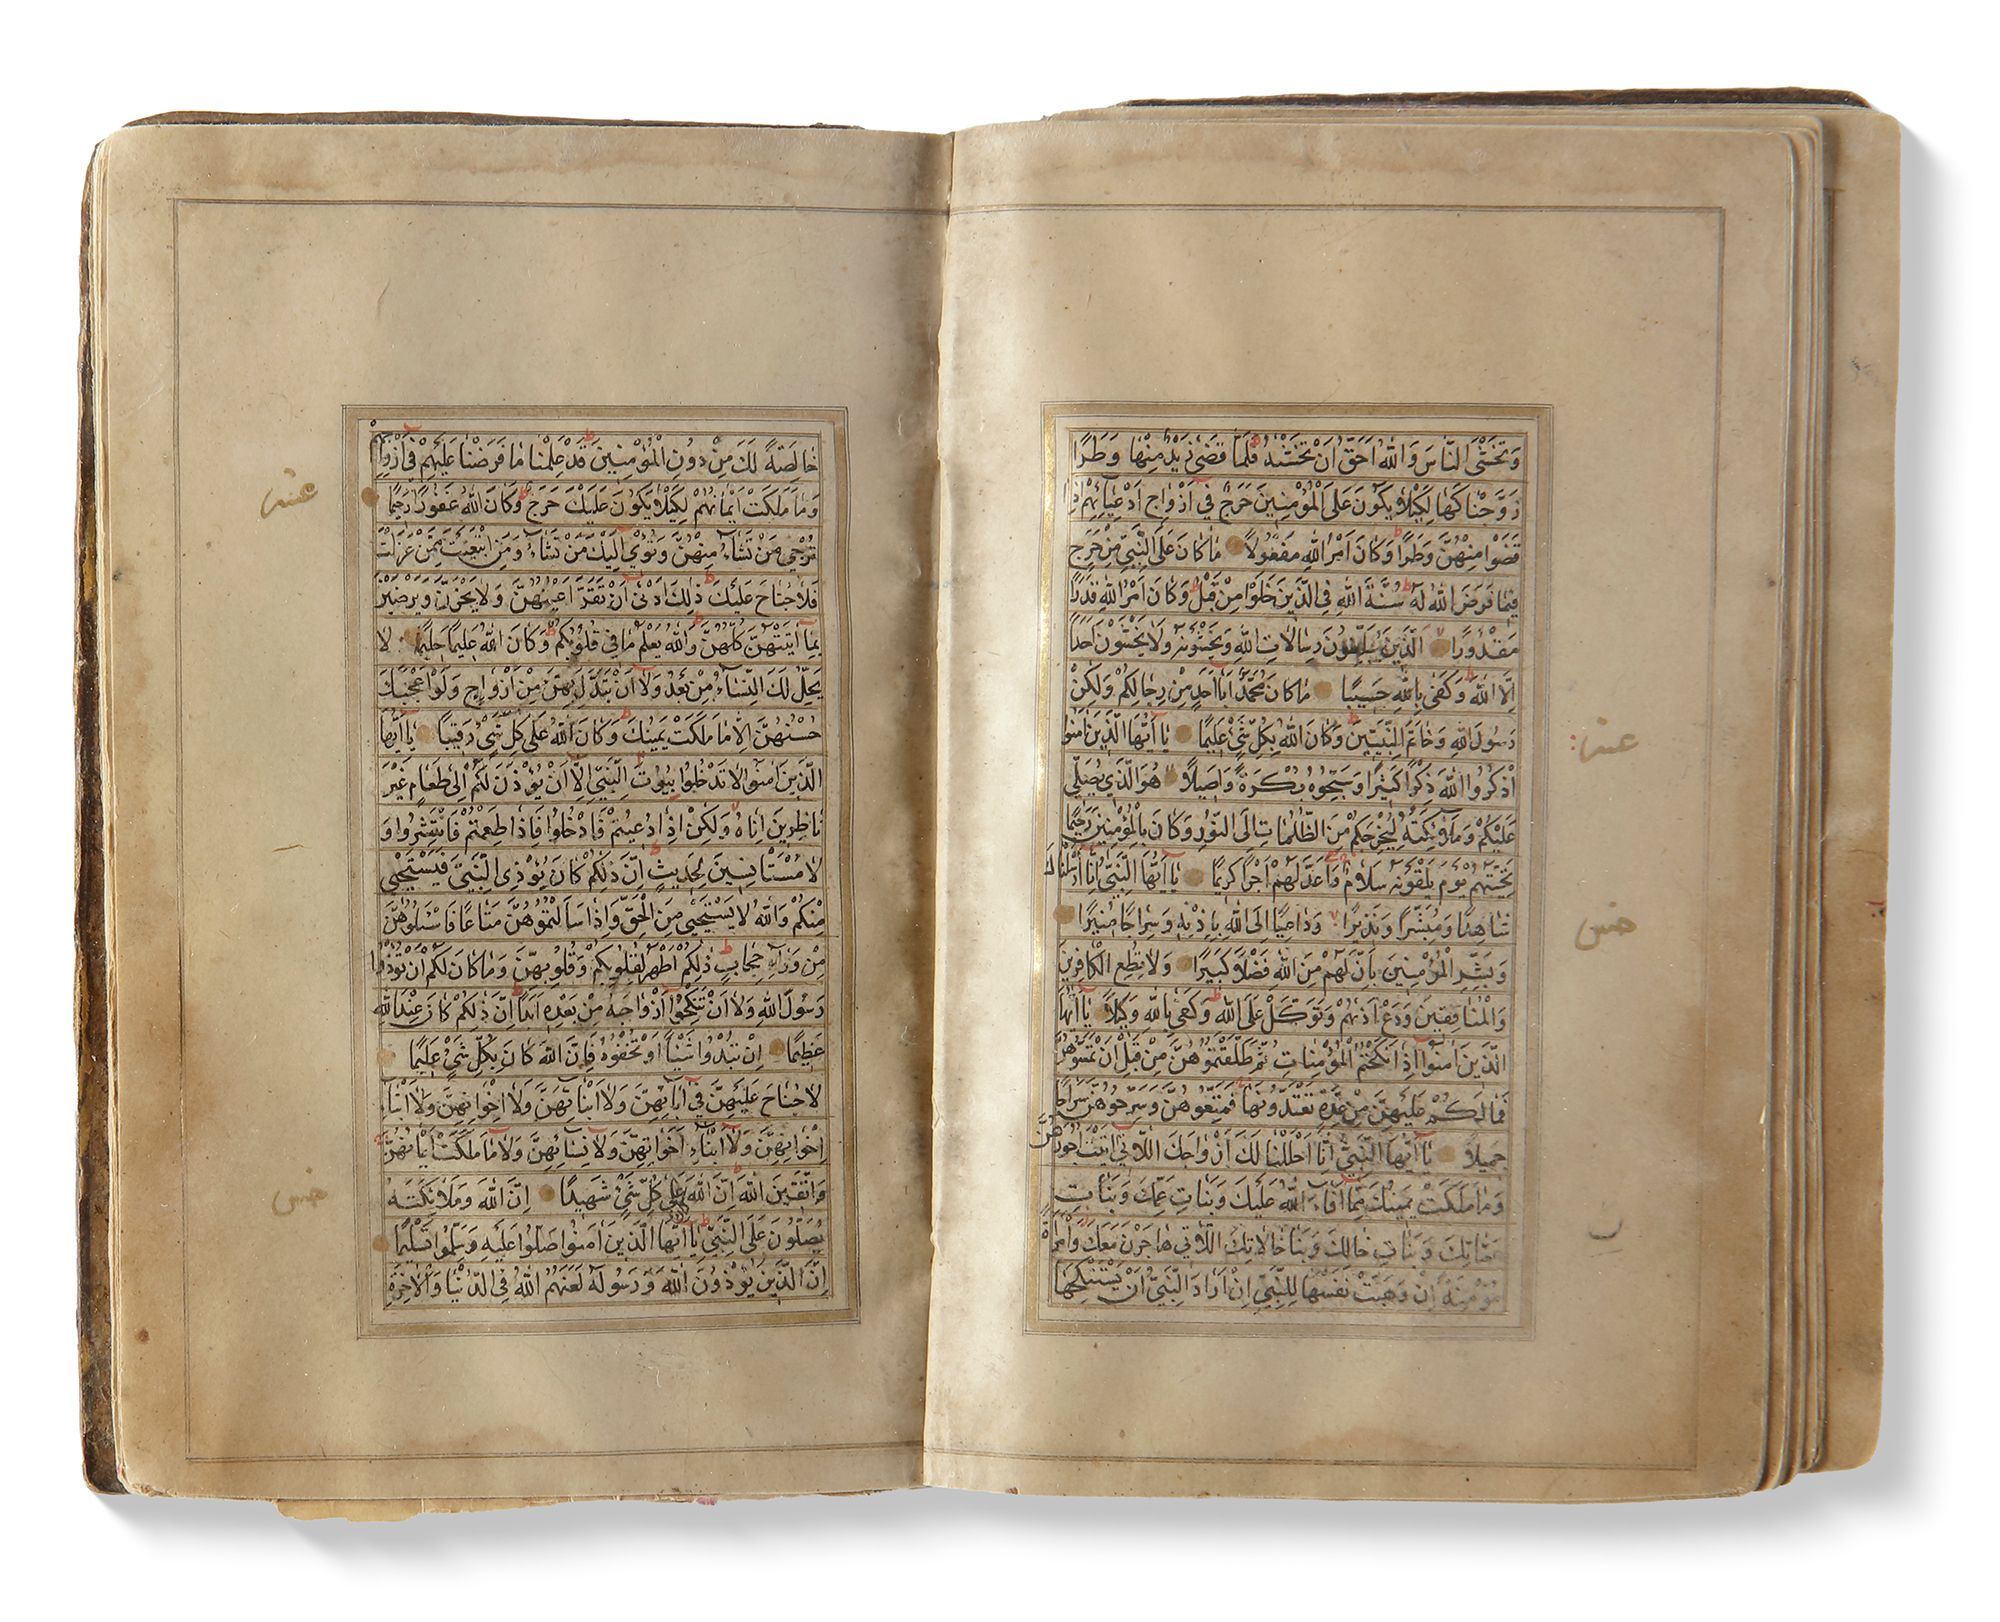 وَتَخْشَى النَّاسَ وَاللّٰهُ اَحَقُّ اَنْ تَخْشٰيهُ فَلَمَّا قَضٰى زَيْدٌ مِنْهَا وَطَرًا
زَوَّجْنَاكَهَا لِكَيْلَا يَكُونَ عَلَى الْمُؤْمِنِينَ حَرَجٌ فِي اَزْوَاجِ اَدْعِيَآئِهِمْ اِذَا
قَضَوْا مِنْهُنَّ وَطَرًا وَكَانَ اَمْرُ اللّٰهِ مَفْعُولًا مَا كَانَ عَلَى النَّبِيِّ مِنْ حَرَجٍ
فِيمَا فَرَضَ اللّٰهُ لَهُ سُنَّةَ اللّٰهِ فِي الَّذِينَ خَلَوْا مِنْ قَبْلُ وَكَانَ اَمْرُ اللّٰهِ قَدَرًا
مَقْدُورًا الَّذِينَ يُبَلِّغُونَ رِسَالَاتِ اللّٰهِ وَيَخْشَوْنَهُ وَلَا يَخْشَوْنَ اَحَدًا
اِلَّا اللّٰهَ وَكَفٰى بِاللّٰهِ حَسِيبًا مَا كَانَ مُحَمَّدٌ اَبَا اَحَدٍ مِنْ رِجَالِكُمْ وَلٰكِنْ
رَسُولَ اللّٰهِ وَخَاتَمَ النَّبِيِّينَ وَكَانَ اللّٰهُ بِكُلِّ شَيْءٍ عَلِيمًا يَا اَيُّهَا الَّذِينَ اٰمَنُوا
اذْكُرُوا اللّٰهَ ذِكْرًا كَثِيرًا وَسَبِّحُوهُ بُكْرَةً وَاَصِيلًا هُوَ الَّذِي يُصَلِّي
عَلَيْكُمْ وَمَلٰٓئِكَتُهُ لِيُخْرِجَكُمْ مِنَ الظُّلُمَاتِ اِلَى النُّورِ وَكَانَ بِالْمُؤْمِنِينَ رَحِيمًا
تَحِيَّتُهُمْ يَوْمَ يَلْقَوْنَهُ سَلَامٌ وَاَعَدَّ لَهُمْ اَجْرًا كَرِيمًا يَا اَيُّهَا النَّبِيُّ اِنَّا اَرْسَلْنَاكَ
شَاهِدًا وَمُبَشِّرًا وَنَذِيرًا وَدَاعِيًا اِلَى اللّٰهِ بِاِذْنِهِ وَسِرَاجًا مُنِيرًا
وَبَشِّرِ الْمُؤْمِنِينَ بِاَنَّ لَهُمْ مِنَ اللّٰهِ فَضْلًا كَبِيرًا وَلَا تُطِعِ الْكَافِرِينَ
وَالْمُنَافِقِينَ وَدَعْ اَذٰيهُمْ وَتَوَكَّلْ عَلَى اللّٰهِ وَكَفٰى بِاللّٰهِ وَكِيلًا يَا اَيُّهَا
الَّذِينَ اٰمَنُوا اِذَا نَكَحْتُمُ الْمُؤْمِنَاتِ ثُمَّ طَلَّقْتُمُوهُنَّ مِنْ قَبْلِ اَنْ تَمَسُّوهُنَّ
فَمَا لَكُمْ عَلَيْهِنَّ مِنْ عِدَّةٍ تَعْتَدُّونَهَا فَمَتِّعُوهُنَّ وَسَرِّحُوهُنَّ سَرَاحًا
جَمِيلًا يَا اَيُّهَا النَّبِيُّ اِنَّا اَحْلَلْنَا لَكَ اَزْوَاجَكَ اللَّاتِي اٰتَيْتَ اُجُورَهُنَّ
وَمَا مَلَكَتْ يَمِينُكَ مِمَّا اَفَاءَ اللّٰهُ عَلَيْكَ وَبَنَاتِ عَمِّكَ وَبَنَاتِ
عَمَّاتِكَ وَبَنَاتِ خَالِكَ وَبَنَاتِ خَالَاتِكَ اللَّاتِي هَاجَرْنَ مَعَكَ وَامْرَاَةً
مُؤْمِنَةً اِنْ وَهَبَتْ نَفْسَهَا لِلنَّبِيِّ اِنْ اَرَادَ النَّبِيُّ اَنْ يَسْتَنْكِحَهَا
خَالِصَةً لَكَ مِنْ دُونِ الْمُؤْمِنِينَ قَدْ عَلِمْنَا مَا فَرَضْنَا عَلَيْهِمْ فِي اَزْوَاجِهِمْ
وَمَا مَلَكَتْ اَيْمَانُهُمْ لِكَيْلَا يَكُونَ عَلَيْكَ حَرَجٌ وَكَانَ اللّٰهُ غَفُورًا رَحِيمًا
تُرْجِي مَنْ تَشَاءُ مِنْهُنَّ وَتُؤْوِي اِلَيْكَ مَنْ تَشَاءُ وَمَنِ ابْتَغَيْتَ مِمَّنْ عَزَلْتَ
فَلَا جُنَاحَ عَلَيْكَ ذٰلِكَ اَدْنٰى اَنْ تَقَرَّ اَعْيُنُهُنَّ وَلَا يَحْزَنَّ وَيَرْضَيْنَ
بِمَا اٰتَيْتَهُنَّ كُلُّهُنَّ وَاللّٰهُ يَعْلَمُ مَا فِي قُلُوبِكُمْ وَكَانَ اللّٰهُ عَلِيمًا حَلِيمًا لَا
يَحِلُّ لَكَ النِّسَاءُ مِنْ بَعْدُ وَلَا اَنْ تَبَدَّلَ بِهِنَّ مِنْ اَزْوَاجٍ وَلَوْ اَعْجَبَكَ
حُسْنُهُنَّ اِلَّا مَا مَلَكَتْ يَمِينُكَ وَكَانَ اللّٰهُ عَلَى كُلِّ شَيْءٍ رَقِيبًا يَا اَيُّهَا
الَّذِينَ اٰمَنُوا لَا تَدْخُلُوا بُيُوتَ النَّبِيِّ اِلَّا اَنْ يُؤْذَنَ لَكُمْ اِلٰى طَعَامٍ غَيْرَ
نَاظِرِينَ اِنَاهُ وَلٰكِنْ اِذَا دُعِيتُمْ فَادْخُلُوا فَاِذَا طَعِمْتُمْ فَانْتَشِرُوا وَ
لَا مُسْتَاْنِسِينَ لِحَدِيثٍ اِنَّ ذٰلِكُمْ كَانَ يُؤْذِي النَّبِيَّ فَيَسْتَحْيِي
مِنْكُمْ وَاللّٰهُ لَا يَسْتَحْيِي مِنَ الْحَقِّ وَاِذَا سَاَلْتُمُوهُنَّ مَتَاعًا فَاسْئَلُوهُنَّ
مِنْ وَرَآءِ حِجَابٍ ذٰلِكُمْ اَطْهَرُ لِقُلُوبِكُمْ وَقُلُوبِهِنَّ وَمَا كَانَ لَكُمْ اَنْ تُؤْذُوا
رَسُولَ اللّٰهِ وَلَا اَنْ تَنْكِحُوا اَزْوَاجَهُ مِنْ بَعْدِهِ اَبَدًا اِنَّ ذٰلِكُمْ كَانَ عِنْدَ اللّٰهِ
عَظِيمًا اِنْ تُبْدُوا شَيْئًا اَوْ تُخْفُوهُ فَاِنَّ اللّٰهَ كَانَ بِكُلِّ شَيْءٍ عَلِيمًا
لَا جُنَاحَ عَلَيْهِنَّ فِي اٰبَائِهِنَّ وَلَا اَبْنَائِهِنَّ وَلَا اِخْوَانِهِنَّ وَلَا اَبْنَاءِ
اِخْوَانِهِنَّ وَلَا اَبْنَاءِ اَخَوَاتِهِنَّ وَلَا نِسَائِهِنَّ وَلَا مَا مَلَكَتْ اَيْمَانُهُنَّ
وَاتَّقِينَ اللّٰهَ اِنَّ اللّٰهَ كَانَ عَلٰى كُلِّ شَيْءٍ شَهِيدًا اِنَّ اللّٰهَ وَمَلٰٓئِكَتَهُ
يُصَلُّونَ عَلَى النَّبِيِّ يَا اَيُّهَا الَّذِينَ اٰمَنُوا صَلُّوا عَلَيْهِ وَسَلِّمُوا تَسْلِيمًا
اِنَّ الَّذِينَ يُؤْذُونَ اللّٰهَ وَرَسُولَهُ لَعَنَهُمُ اللّٰهُ فِي الدُّنْيَا وَالْاٰخِرَةِ